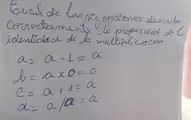 Cual de las sig opciones describe
correctamente la propiedad de la
identidad de la multiplicacion
a = a - 1 = a
b = a x 0 = 0
c = a + 1 = a
d = a / a = a